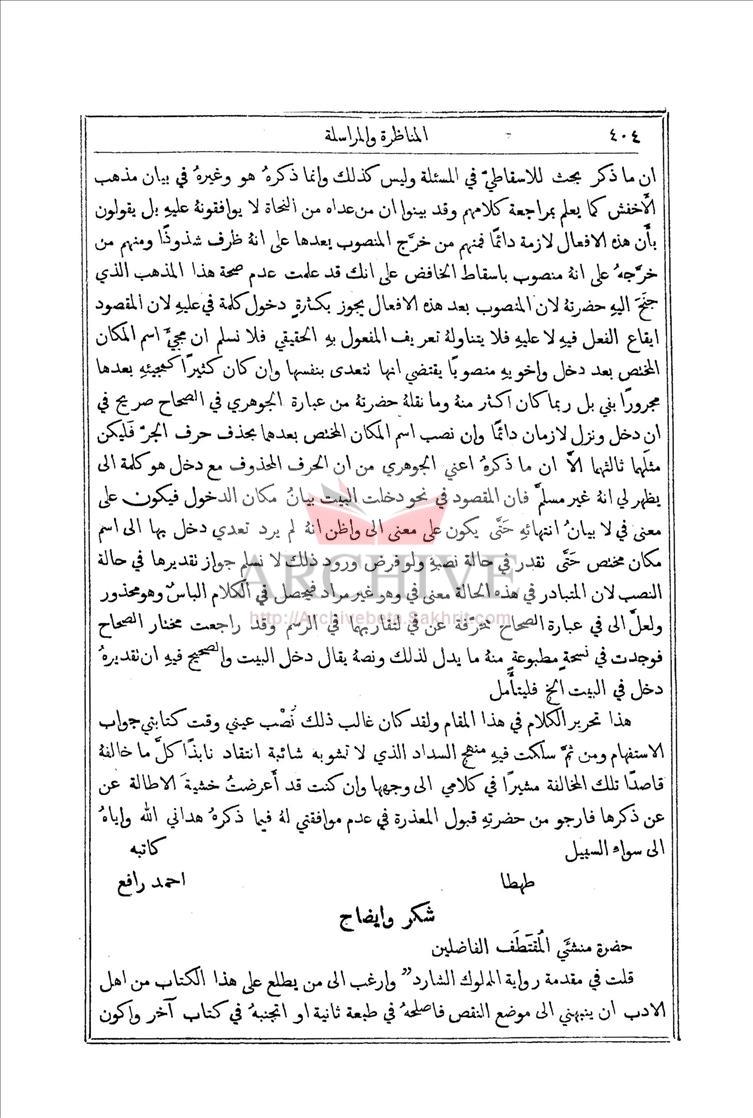 ٤٠٤ المناظرة والمراسلة
ان ما ذكر بحث للاسقاطيّ في المسئلة وليس كذلك وانما ذكرهُ هو وغيرهُ في بيان مذهب
الأخفش كما يعلم بمراجعة كلامهم وقد بينوا ان من عداه من النحاة لا يوافقونهُ عليهِ بل يقولون
بأن هذه الافعال لازمة دائمًا فمنهم من خرَّج المنصوب بعدها على انهُ ظرف شذوذًا ومنهم من
خرَّجهُ على انهُ منصوب باسقاط الخافض على انك قد علمت عدم صحة هذا المذهب الذي
جنَح اليهِ حضرتهُ لان المنصوب بعد هذه الافعال يجوز بكثرةٍ دخول كلمة في عليهِ لان المقصود
ايقاع الفعل فيهِ لا عليهِ فلا يتناولهُ تعريف المفعول بهِ الحقيقي فلا نسلم ان مجيَّ اسم المكان
المختص بعد دخل واخويهِ منصوبًا يقتضي انها تتعدى بنفسها وإن كان كثيرًا كمجيئهِ بعدها
مجرورًا بفي بل ربما كان اكثر منهُ وما نقلهُ حضرتهُ من عبارة الجوهري في الصحاح صريح في
ان دخل ونزل لازمان دائمًا وإن نصب اسم المكان المختص بعدها بحذف حرف الجرّ فليكن
مثلَها ثالثها الَّا ان ما ذكرهُ اعني الجوهري من ان الحرف المحذوف مع دخل هو كلمة الى
يظهر لي انهُ غير مسلَّم فان المقصود في نحو دخلت البيت بيانُ مكان الدخول فيكون على
معنى في لا بيانُ انتهائهِ حَتَّى يكون على معنى الى واظن انهُ لم يرد تعدي دخل بها الى اسم
مكان مختص حَتَّى تقدر في حالة نصبهِ ولو فرض ورود ذلك لا نسلم جواز تقديرها في حالة
النصب لان المتبادر في هذه الحالة معنى في وهو غير مراد فيحصل في الكلام الباسٌ وهو محذور
ولعلَّ الى في عبارة الصحاح محرَّفة عن في لتقاربهما في الرسم وقد راجعت مختار الصحاح
فوجدت في نسخةٍ مطبوعةٍ منهُ ما يدل لذلك ونصهُ يقال دخل البيت والصحيح فيهِ ان تقديرهُ
دخل في البيت الخ فليتأمل
هذا تحرير الكلام في هذا المقام ولقد كان غالب ذلك نُصْب عيني وقت كتابتي جواب
الاستفهام ومن ثَمَّ سلكت فيهِ منهج السداد الذي لا تشوبهُ شائبة انتقاد نابذًا كلَّ ما خالفهُ
قاصدًا تلك المخالفة مشيرًا في كلامي الى وجهها وإن كنت قد أعرضتُ خشيةَ الاطالة عن
عن ذكرها فارجو من حضرتهِ قبول المعذرة في عدم موافقتي لهُ فيما ذكرهُ هداني الله واياهُ
الى سواء السبيل كاتبه
طهطا احمد رافع
شكر وايضاح
حضرة منشئَي المُقتَطَف الفاضلين
قلت في مقدمة رواية المملوك الشارد" وارغب الى من يطلع على هذا الكتاب من اهل
الادب ان ينبهني الى موضع النقص فاصلحهُ في طبعة ثانية او اتجنبهُ في كتاب آخر واكون
ARCHIVE
http://Archivebeta.Sakhrit.com